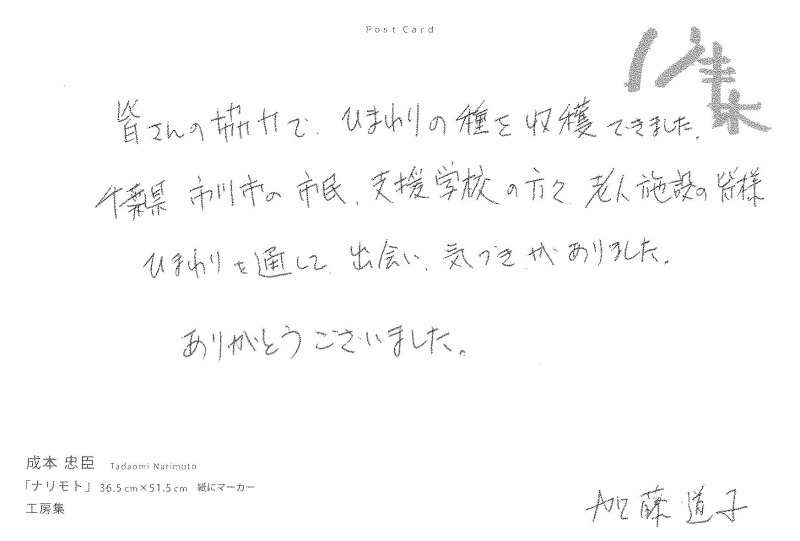 Post Card
皆さんの協力で、ひまわりの種を収穫できました。
千葉県 市川市の市民、支援学校の方々、老人施設の皆様
ひまわりを通して、出会い、気づきがありました。
ありがとうございました。
成本 忠臣 Tadaomi Narimoto
「ナリモト」 36.5cm×51.5cm 紙にマーカー
工房集
加藤 道子